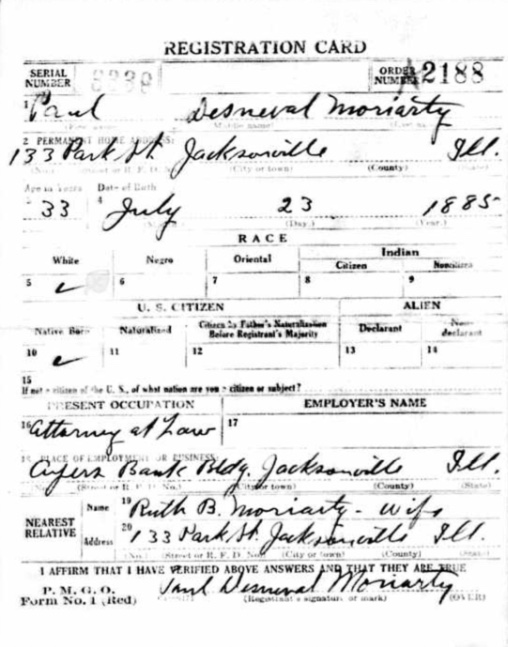 REGISTRATION CARD
SERIAL NUMBER ORDER NUMBER A2188
1 Paul Desneval Moriarty
(First name) (Middle name) (Last name)
2 PERMANENT HOME ADDRESS:
133 Park St. Jacksonville Ill.
(No.) (Street or R. F. D. No.) (City or town) (County) (State)
Age in Years Date of Birth
3 33 4 July 23 1885
(Month.) (Day.) (Year.)
RACE
White Negro Oriental Indian
Citizen Noncitizen
5 ✓ 6 7 8 9
U. S. CITIZEN ALIEN
Native Born Naturalized Citizen by Father's Naturalization Before Registrant's Majority Declarant Non-declarant
10 ✓ 11 12 13 14
15
If not a citizen of the U. S., of what nation are you a citizen or subject?
PRESENT OCCUPATION EMPLOYER'S NAME
16 Attorney at Law 17
18 PLACE OF EMPLOYMENT OR BUSINESS:
Ayers Bank Bldg. Jacksonville Ill.
(No.) (Street or R. F. D. No.) (City or town) (County) (State)
NEAREST RELATIVE Name 19 Ruth B. Moriarty - wife
Address 20 133 Park St. Jacksonville Ill.
(No.) (Street or R. F. D. No.) (City or town) (County) (State)
I AFFIRM THAT I HAVE VERIFIED ABOVE ANSWERS AND THAT THEY ARE TRUE
P. M. G. O.
Form No. 1 (Red) Paul Desneval Moriarty
(Registrant's signature or mark) (OVER)